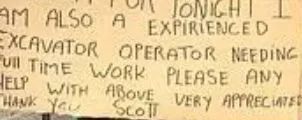 FOR TONIGHT I
AM ALSO A EXPIRIENCED
EXCAVATOR OPERATOR NEEDING
FUll TIME WORK PLEASE ANY
HELP WITH ABOVE VERY APPRECIATED
THANK YOU SCOTT